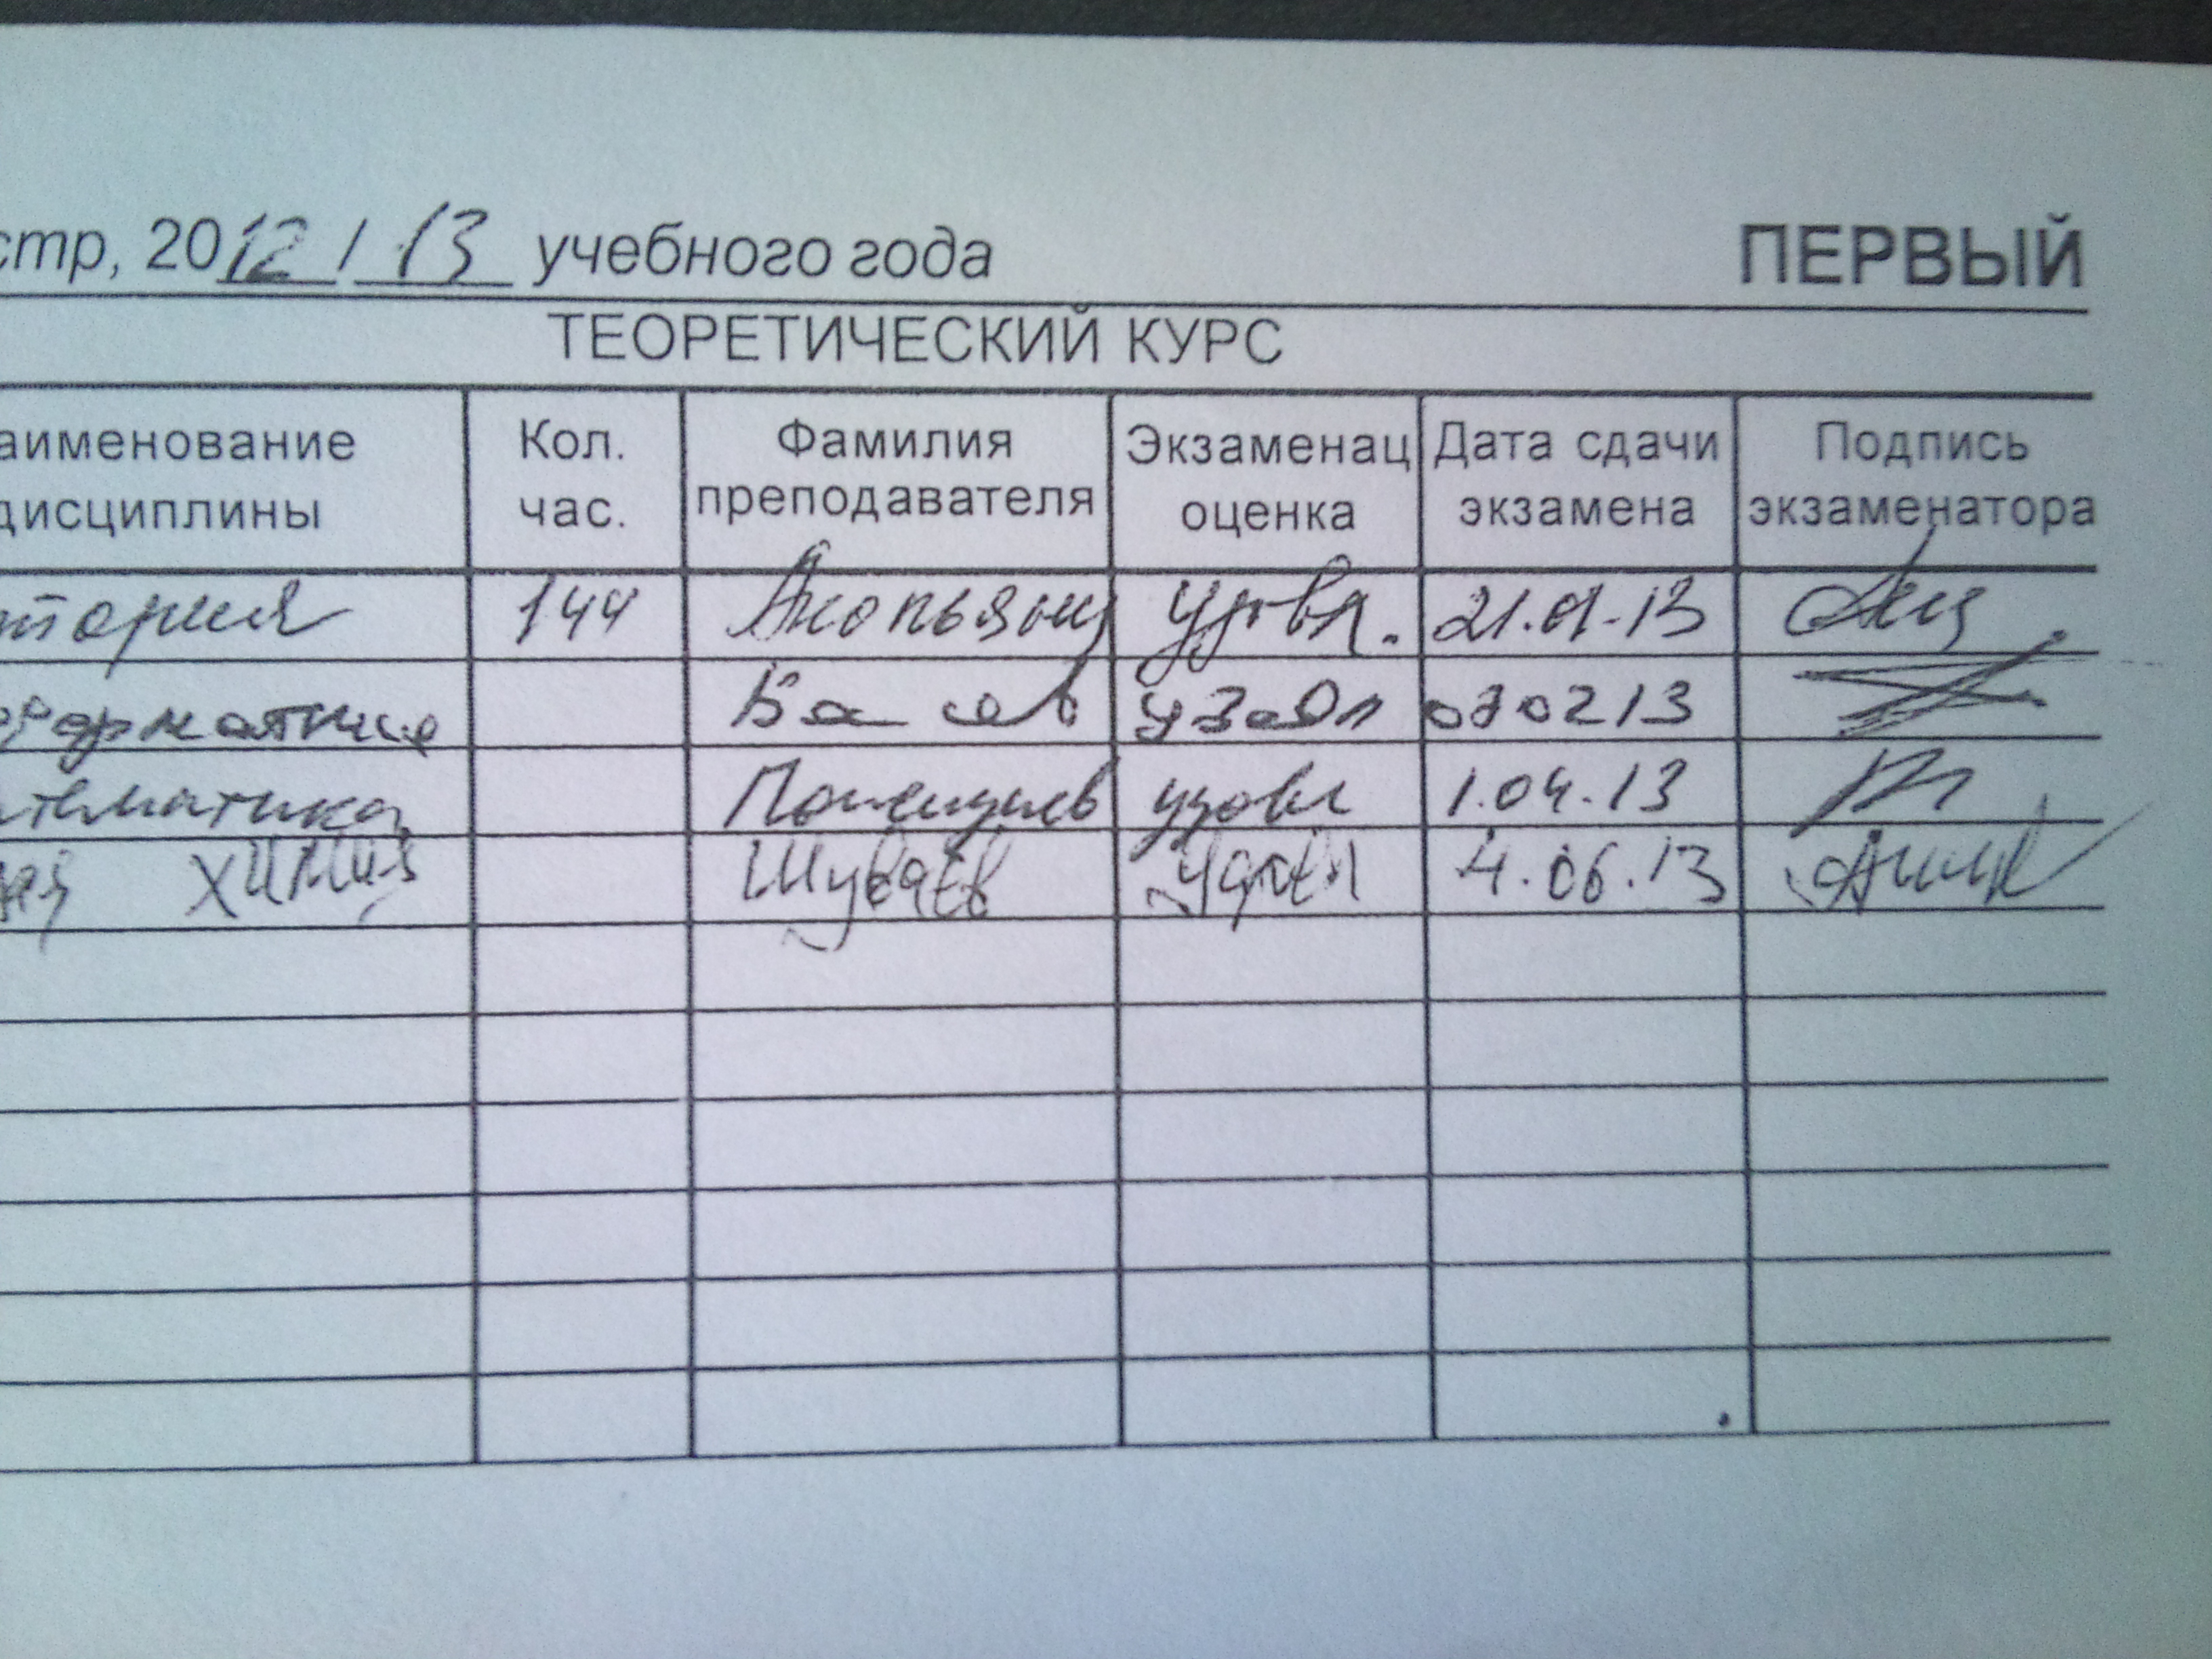 стр, 2012 / 13 учебного года ПЕРВЫЙ
ТЕОРЕТИЧЕСКИЙ КУРС
аименование Кол. Фамилия Экзаменац Дата сдачи Подпись
дисциплины час. преподавателя оценка экзамена экзаменатора
тория 144 Акопьянц удовл. 21.01.13
удовл 070213
тематика удовл 1.04.13
ая химия Шуваев Удовл 4.06.13